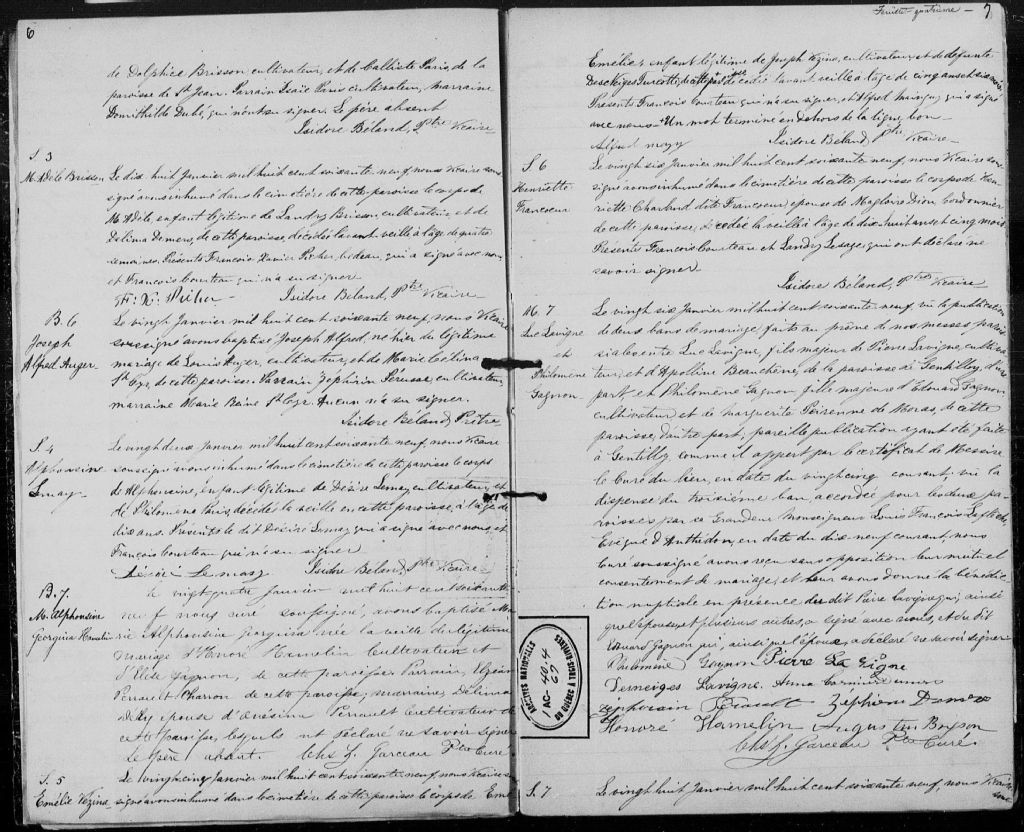 6
de Dolphice Brisson cultivateur, et de Calliste Paris, de la
paroisse de St Jean. Parrain Isaïe Paris cultivateur, marraine
Domithilde Dubé, qui n'ont su signer. Le père absent
Isidore Béland, Ptre Vicaire
S. 3
M. Adèle Brisson
Le dix huit Janvier mil huit cent soixante neuf, nous Vicaire sous
signé avons inhumé dans le cimetière de cette paroisse le corps de
M. Adèle enfant légitime de Landry Brisson, cultivateur, et de
Delima Demers, de cette paroisse, décédée l'avant veille à l'âge de quatre
semaines. Présents François Xavier Picher, bedeau, qui a signé avec nous
et François Courteau qui n'a su signer
F. X. Picher Isidore Béland, Ptre Vicaire
B. 6
Joseph
Alfred Auger
Le vingt Janvier mil huit cent soixante neuf, nous Vicaire
soussigné avons baptisé Joseph Alfred, né hier du légitime
mariage de Louis Auger, cultivateur, et de Marie Celina
St Cyr de cette paroisse. Parrain Zephirin Pérusse, cultivateur,
marraine Marie Reine St Cyr. Aucun n'a su signer.
Isidore Béland, Prêtre
S. 4
Alphonsine
Lemay
Le vingt deux Janvier mil huit cent soixante neuf, nous Vicaire
soussigné avons inhumé dans le cimetière de cette paroisse le corps
de Alphonsine, enfant légitime de Désiré Lemay, cultivateur, et
de Philomène Paris, décédée la veille en cette paroisse, à l'âge de
dix ans. Présents le dit Désiré Lemay qui a signé avec nous, et
François Courteau qui n'a su signer
Désiré Lemay Isidore Béland, Ptre Vicaire
B. 7.
M. Alphonsine
Georgina Hamelin
le vingt quatre janvier mil huit cent soixante
neuf nous curé soussigné, avons baptisé Ma
rie Alphonsine Georgina née la veille du légitime
mariage d'Honoré Hamelin Cultivateur et
d' Gagnon, de cette paroisse Parrain,
Perault Charron de cette paroisse, marraine, Délima
épouse d'Onésime Perrault cultivateur de
cette paroisse, lesquels ont déclaré ne savoir signer
Le Père absent. Chs F. Garceau Ptre Curé
S. 5
Emélie Vézina
Le vingt cinq Janvier mil huit cent soixante neuf, nous Vicaire sous
signé avons inhumé dans le cimetière de cette paroisse le corps de Emé
Feuillet quatrième — 7
Emélie, enfant légitime de Joseph Vézina, cultivateur, et de défunte
Desneiges Turcotte, de cette paroisse, décédée l'avant veille à l'âge de cinq ans et six mois
Présents François Courteau qui n'a su signer, et Alfred qui a signé
avec nous. Un mot terminé en dehors de la ligne, bon
Alfred Isidore Béland, Ptre Vicaire
S. 6
Henriette
Francoeur
Le vingt six Janvier mil huit cent soixante neuf, nous Vicaire sous
signé avons inhumé dans le cimetière de cette paroisse le corps de Hen
riette Charland dite Francoeur, épouse de Magloire Dion, Cordonnier
de cette paroisse, décédée la veille à l'âge de dix huit ans et cinq mois
Présents François Courteau et Landry Lesage, qui ont déclaré ne
savoir signer
Isidore Béland, Ptre Vicaire
M. 7
Luc Lavigne
et
Philomène
Gagnon
Le vingt six Janvier mil huit cent soixante neuf vu la publication
de deux bans de mariage, faite au prône de nos messes parois
siales entre Luc Lavigne, fils majeur de Pierre Lavigne, cultiva
teur, et d'Apolline Beauchêne, de la paroisse de Gentilly, d'une
part, et Philomène Gagnon fille majeure d'Edouard Gagnon
cultivateur et de Marguerite Poirenne de Moras, de cette
paroisse, d'autre part, pareille publication ayant été faite
à Gentilly, comme il appert par le certificat de Messire
le Curé du lieu, en date du vingt cinq courant, vu la
dispense du troisième ban, accordée pour les deux pa
roisses par sa Grandeur Monseigneur Louis François Laflèche
Evêque d'Anthédon, en date du dix neuf courant nous
Curé soussigné avons reçu sans opposition leur mutuel
consentement de mariage, et leur avons donné la bénédic
tion nuptiale en présence du dit Pierre Lavigne qui, ainsi
que l'épouse, et plusieurs autres, a signé avec nous, et du dit
Edouard Gagnon qui, ainsi que l'époux a déclaré ne savoir signer
Philomène Gagnon Pierre La Vigne
Desneiges Lavigne. Anna
Zéphirin Perrault Zéphirin Demers
Honoré Hamelin
Chs F. Garceau Ptre Curé.
S. 7
Le vingt huit Janvier mil huit cent soixante neuf, nous Vicaire
sous
ARCHIVES NATIONALES
DU QUÉBEC À TROIS-RIVIÈRES
AC-404
69